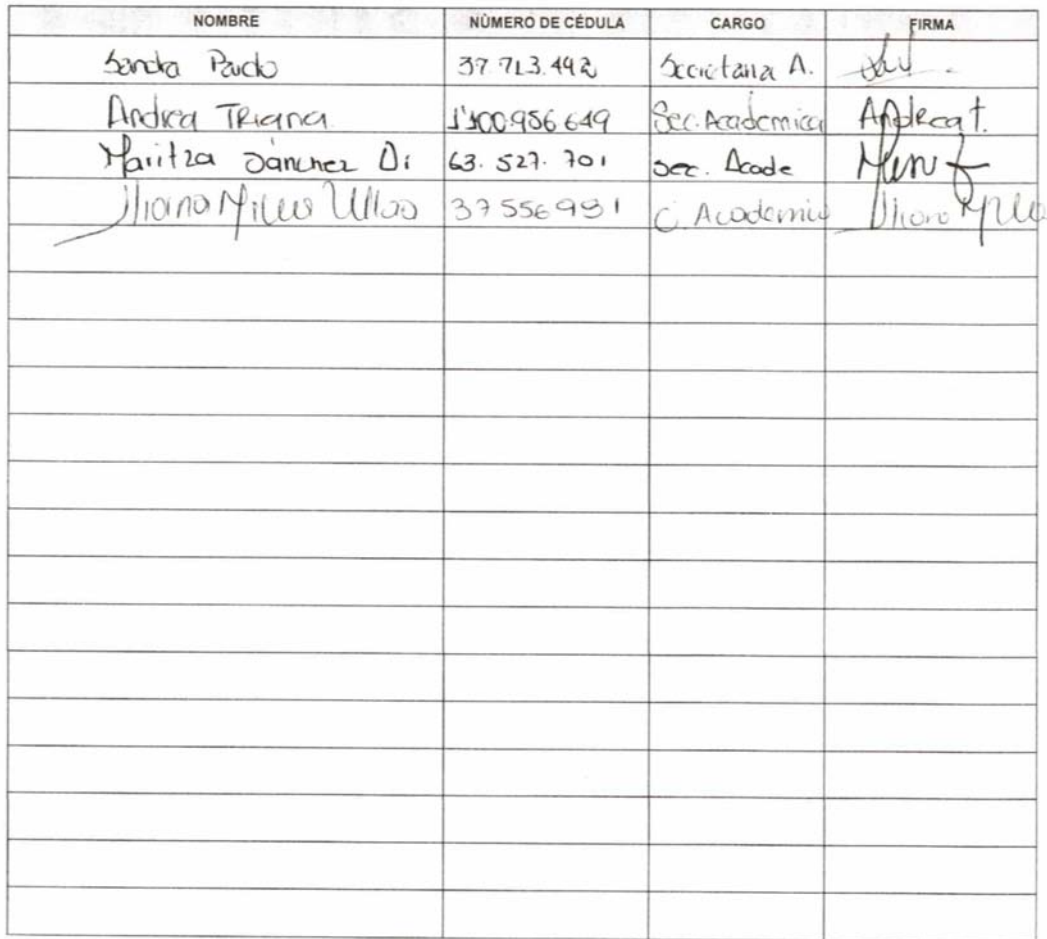 NOMBRE NÚMERO DE CÉDULA CARGO FIRMA
Sandra Pardo 37.713.492 Secretaria A.
Andrea TRiana 1'100.956.649 Sec. Academica Andrea t.
Maritza Sánchez Di 63.527.701 Sec. Acade
Ulloa 37556991 C. Academic